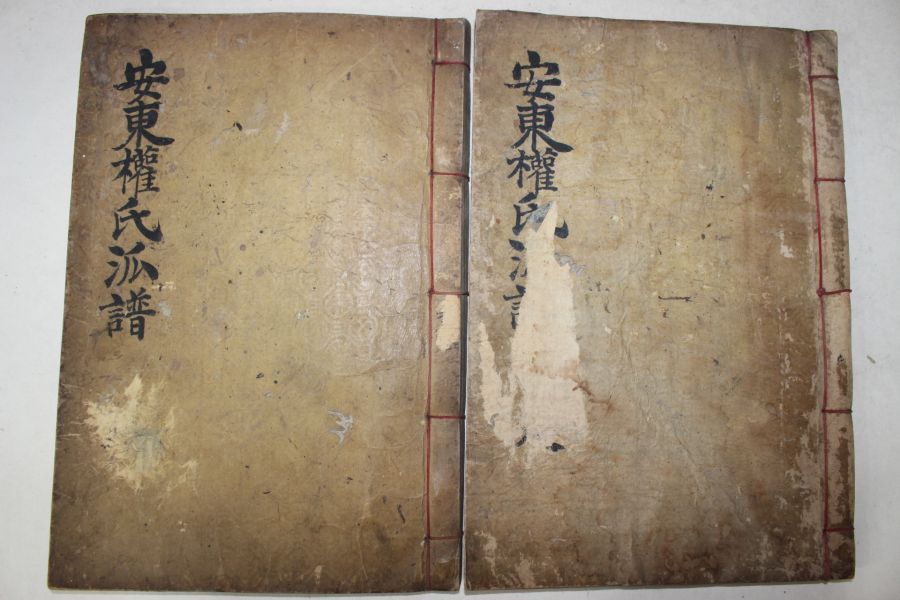 安東權氏派譜
安東權氏